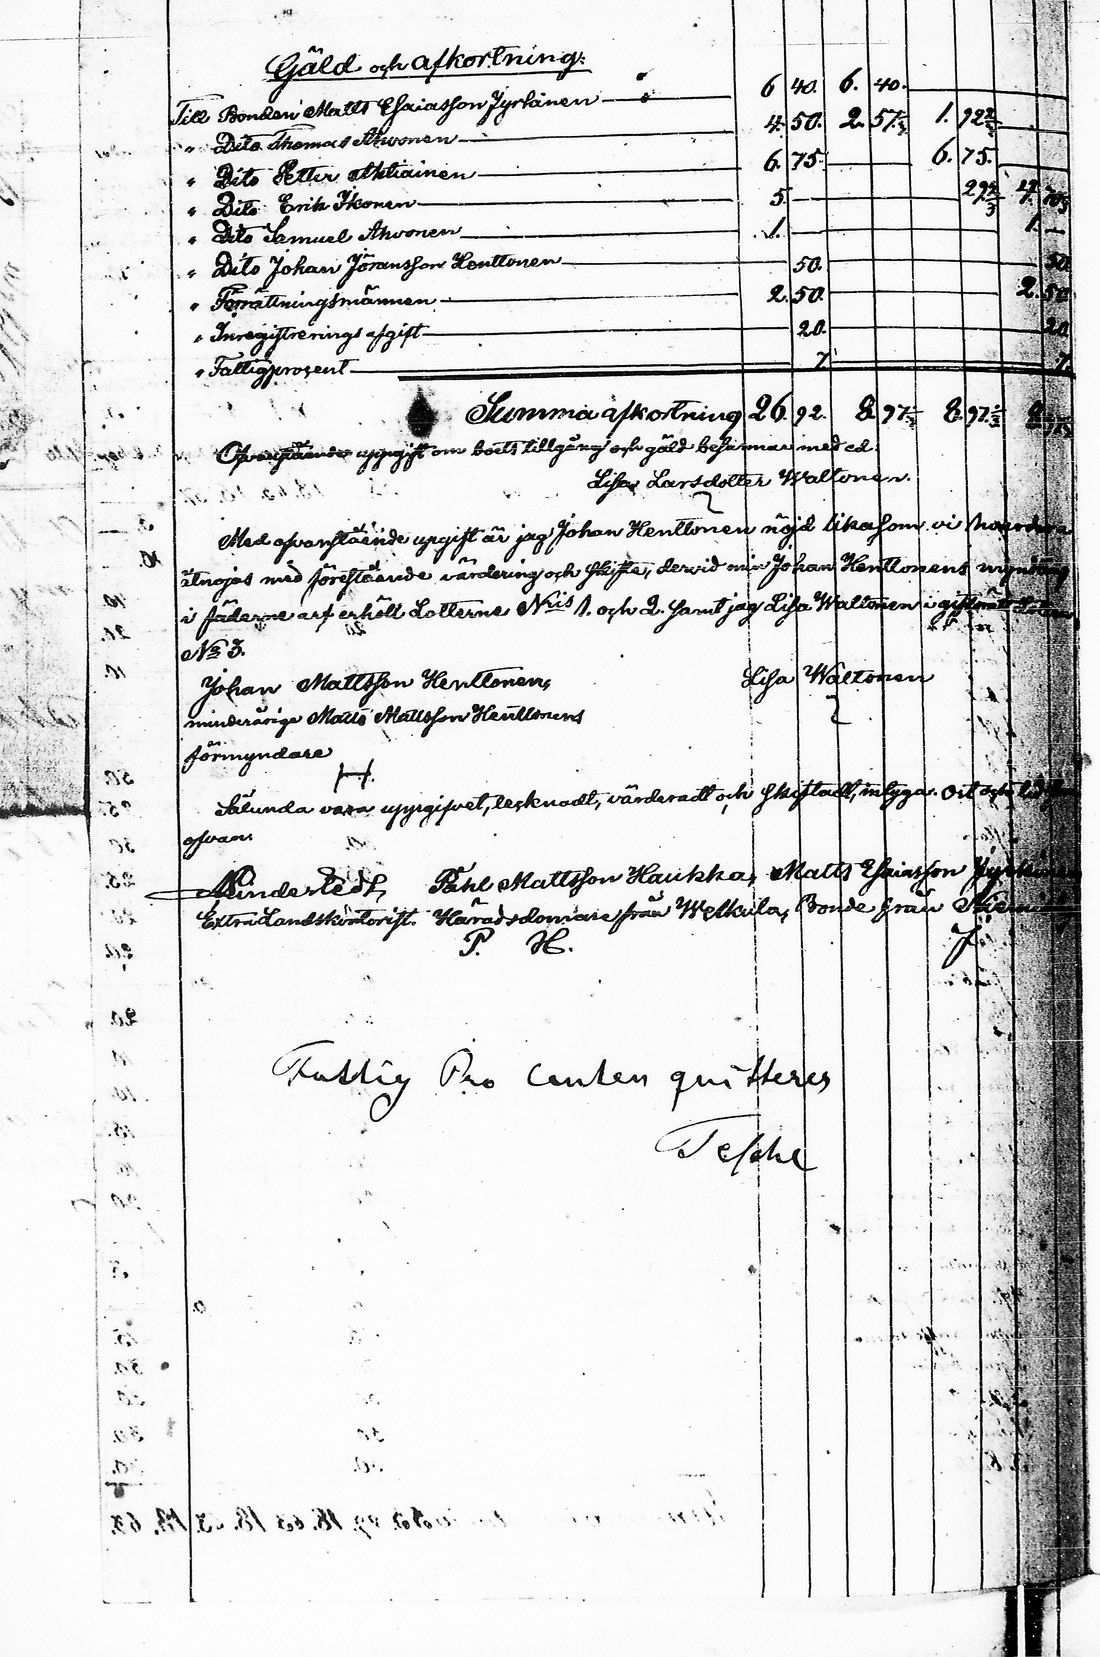 Gäld och afkortning:
Till Bonden Matts Esaiasson Jyrkinen 6 40. 6. 40.
" Dito Thomas Ahvonen 4. 50. 2. 57 1/3 1. 92 2/3
" Dito Petter Ahtiainen 6. 75 6. 75.
" Dito Erik Ikonen 5.
" Dito Samuel Ahvonen 1. 1.
" Dito Johan Jöransson Henttonen 50. 50
" Förrättningsmännen 2. 50. 2. 50
" Inregistrerings afgift 20. 20
" Fattigprosent 7 7.
Summa afkortning 26. 92. 8. 97 1/3 8. 97 1/3 8. 97 1/3
Ofvanstående uppgift om boets tillgång och gäld besannar med ed.
Lisa Larsdotter Waltonen.
Med ofvanstående upgift är jag Johan Henttonen nöjd likasom vi hvardera
åtnöjas med förestående värdering och skifte, dervid min Johan Henttonens myndling
i fäderne arf erhöll Lotterne Nris 1. och 2. samt jag Lisa Waltonen i giftorätt Lotten
No 3.
Johan Mattsson Henttonen, Lisa Waltonen
minderårige Matts Mattsson Henttonens
förmyndare
H.
Sålunda vara uppgifvet, tecknadt, värderadt och skiftadt, intyga. Ort och tid som
ofvan.
Pehl Mattsson Haukka, Matts Esaiasson Jyrkinen
Extra Landskontorist. Häradsdomare från Welkula, Bonde från
P. H. J.
Fattig Pro Centen quitteres